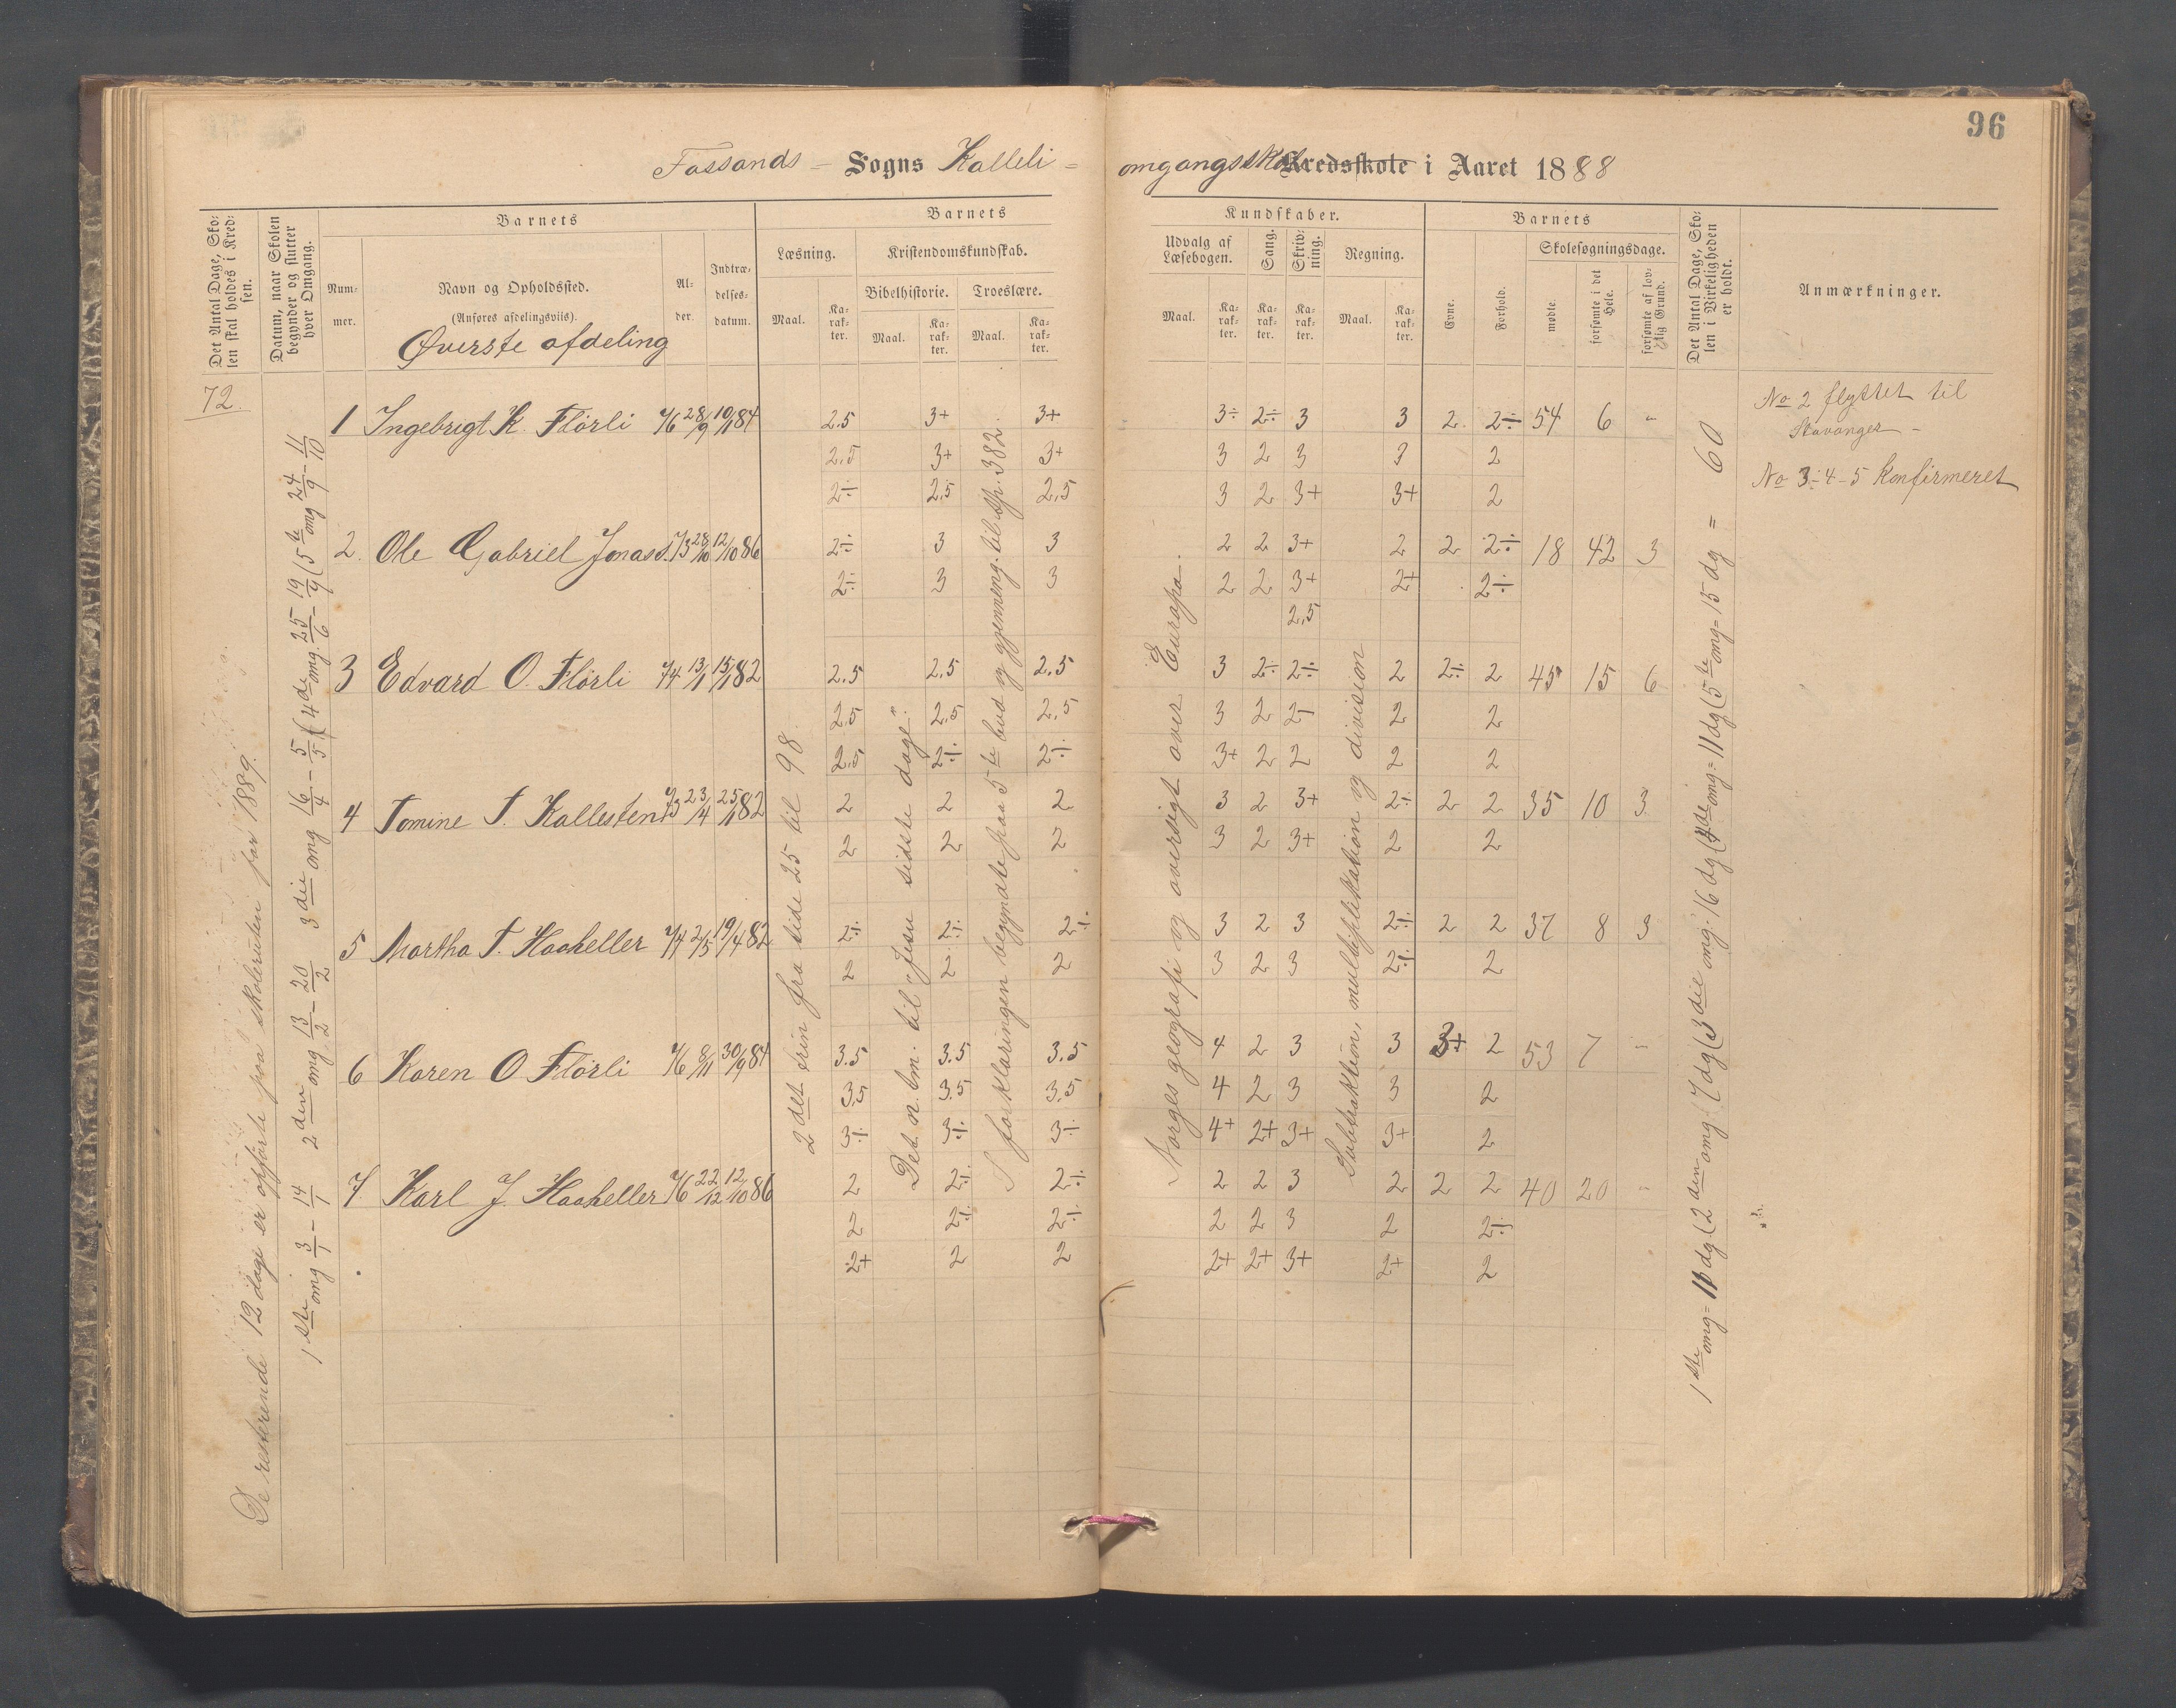 96
Fossands – Sogns Kalleli =
omgangsskole Kredsskole i Aaret 1888
Det Antal Dage, Sko-
len skal holdes i Kred-
sen.
Datum, naar Skolen
begynder og slutter
hver Omgang.
Barnets
Num-
mer.
Navn og Opholdssted.
(Anføres afdelingsviis).
Øverste afdeling
Al-
der.
Indtræ-
delses-
datum.
Barnets
Læsning.
Kristendomskundskab.
Bibelhistorie.
Troeslære.
Maal.
Ka-
rak-
ter.
Maal.
Ka-
rak-
ter.
Maal.
Ka-
rak-
ter.
Kundskaber.
Udvalg af
Læsebogen.
Sang.
Skriv-
ning.
Regning.
Maal.
Ka-
rak-
ter.
Ka-
rak-
ter.
Ka-
rak-
ter.
Maal.
Ka-
rak-
ter.
Barnets
Evne.
Forhold.
Skolesøgningsdage.
mødte.
forsømte i det
Hele.
forsømte af lov-
lig Grund.
Det Antal Dage, Sko-
len i Virkeligheden
er holdt.
Anmærkninger.
72.
De resterende 12 dage er opførte paa skoleruten for 1889.
1ste omg 3/1 – 14/1 2den omg 13/2 – 20/2 3die omg 16/4 – 5/5 (4de omg. 25/6 – 19/9 (5te omg 24/9 – 11/10
1 Ingebrigt K. Flörli 7/6 28/9 10/1 84 2.5 3+ 3+ 3÷ 2÷ 3 3 2 2÷ 54 6 "
2.5 3+ 3+ 3 2 3 3 2
2÷ 2.5 2.5 3 2 3+ 3+ 2
2. Ole Gabriel Jonass. 7/3 28/10 12/10 86 2÷ 3 3 2 2 3+ 2 2 2÷ 18 42 3
2÷ 3 3 2 2 3+ 2+ 2÷
2.5
3 Edvard O. Flörli 7/4 13/1 15/1 82 2.5 2.5 2.5 3 2÷ 2÷ 2 2÷ 2 45 15 6
2.5 2.5 2.5 3 2 2÷ 2 2
2.5 2÷ 2÷ 3+ 2 2 2 2
4 Tomine T. Kallesten 7/3 23/4 25/1 82 2 2 2 3 2 3+ 2÷ 2 2 35 10 3
2 2 2 3 2 3+ 2 2
5 Martha T. Haaheller 7/4 2/5 19/4 82 2÷ 2÷ 2÷ 3 2 3 2÷ 2 2 37 8 3
2 2 2 3 2 3 2÷ 2
6 Karen O Flörli 7/6 8/11 30/9 84 3.5 3.5 3.5 4 2 3 3 3+ 2 53 7 "
3.5 3.5 3.5 4 2 3 3 2
3÷ 3÷ 3÷ 4+ 2+ 3+ 3+ 2
7 Karl J. Haaheller 7/6 22/12 12/10 86 2 2÷ 2÷ 2 2 3 2 2 2 40 20 "
2 2÷ 2÷ 2 2 3 2 2÷
2+ 2 2 2+ 2+ 3+ 2+ 2
2det trin fra side 25 til 98.
Det n. tm. til „Jesu sidste dage".
I forklaringen begyndte fraa 5te bud og gjennemg. til sp. 382.
Norges geografi og oversigt over Europa.
Subtraktion, multiplikation og division
1ste omg = 11 dg (2den omg 7 dg (3die omg: 16 dg (4de omg = 11 dg (5te omg = 15 dg = 60
No 2 flyttet til
Stavanger –
No 3–4–5 Konfirmeret